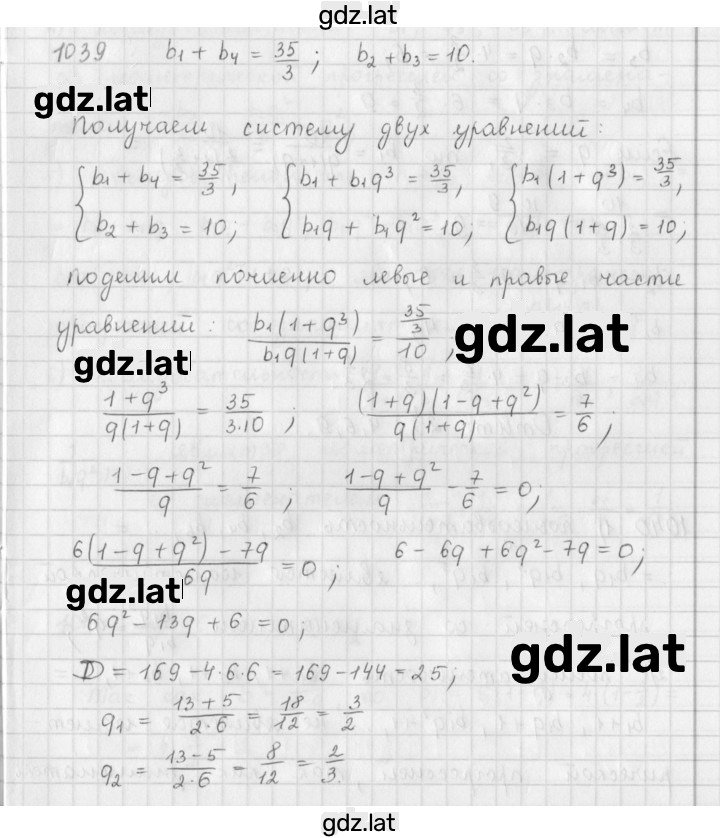 gdz.lat
1039 b₁ + b₄ = 35/3 ; b₂ + b₃ = 10.
gdz.lat
Получаем систему двух уравнений:
{ b₁ + b₄ = 35/3, { b₁ + b₁q³ = 35/3, { b₁(1 + q³) = 35/3,
b₂ + b₃ = 10; b₁q + b₁q² = 10; b₁q(1 + q) = 10;
поделим почленно левые и правые части
уравнений: b₁(1 + q³)/b₁q(1 + q) = 35/3/10 ,
gdz.lat
gdz.lat
1 + q³/q(1 + q) = 35/3·10 ; (1 + q)(1 - q + q²)/q(1 + q) = 7/6 ;
1 - q + q²/q = 7/6 ; 1 - q + q²/q - 7/6 = 0;
6(1 - q + q²) - 7q/6q = 0 ; 6 - 6q + 6q² - 7q = 0;
gdz.lat
6q² - 13q + 6 = 0;
gdz.lat
D = 169 - 4·6·6 = 169 - 144 = 25;
q₁ = 13 + 5/2·6 = 18/12 = 3/2
q₂ = 13 - 5/2·6 = 8/12 = 2/3.
gdz.lat